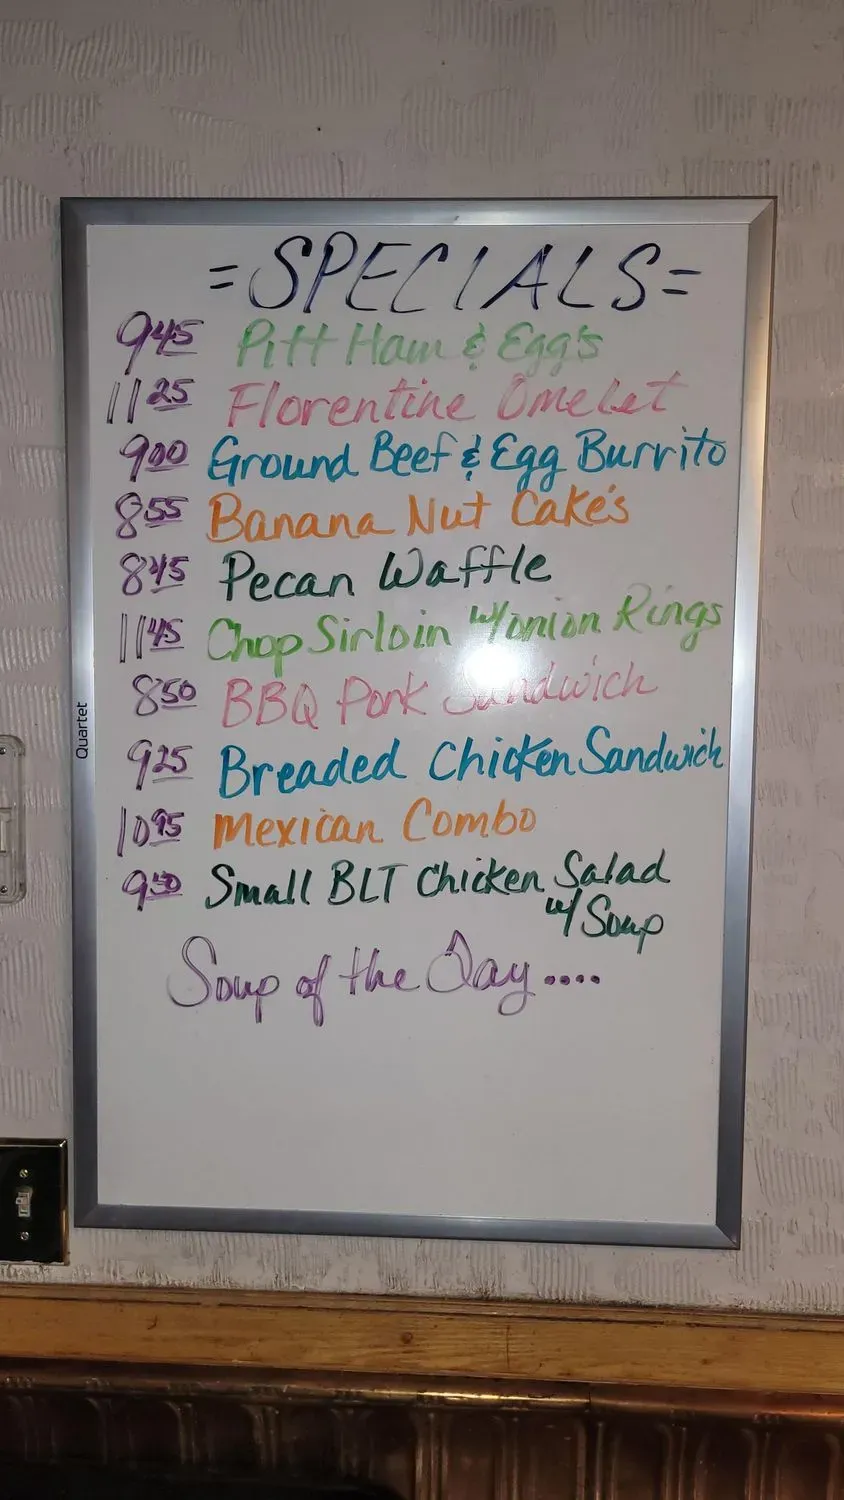 =SPECIALS=
9.45 Pitt Ham & Egg's
11.25 Florentine Omelet
9.00 Ground Beef & Egg Burrito
8.55 Banana Nut Cake's
8.45 Pecan Waffle
11.45 Chop Sirloin w/onion Rings
8.50 BBQ Pork Sandwich
9.25 Breaded Chicken Sandwich
10.95 Mexican Combo
Small BLT Chicken Salad
w/ Soup
Soup of the Day....
Quartet